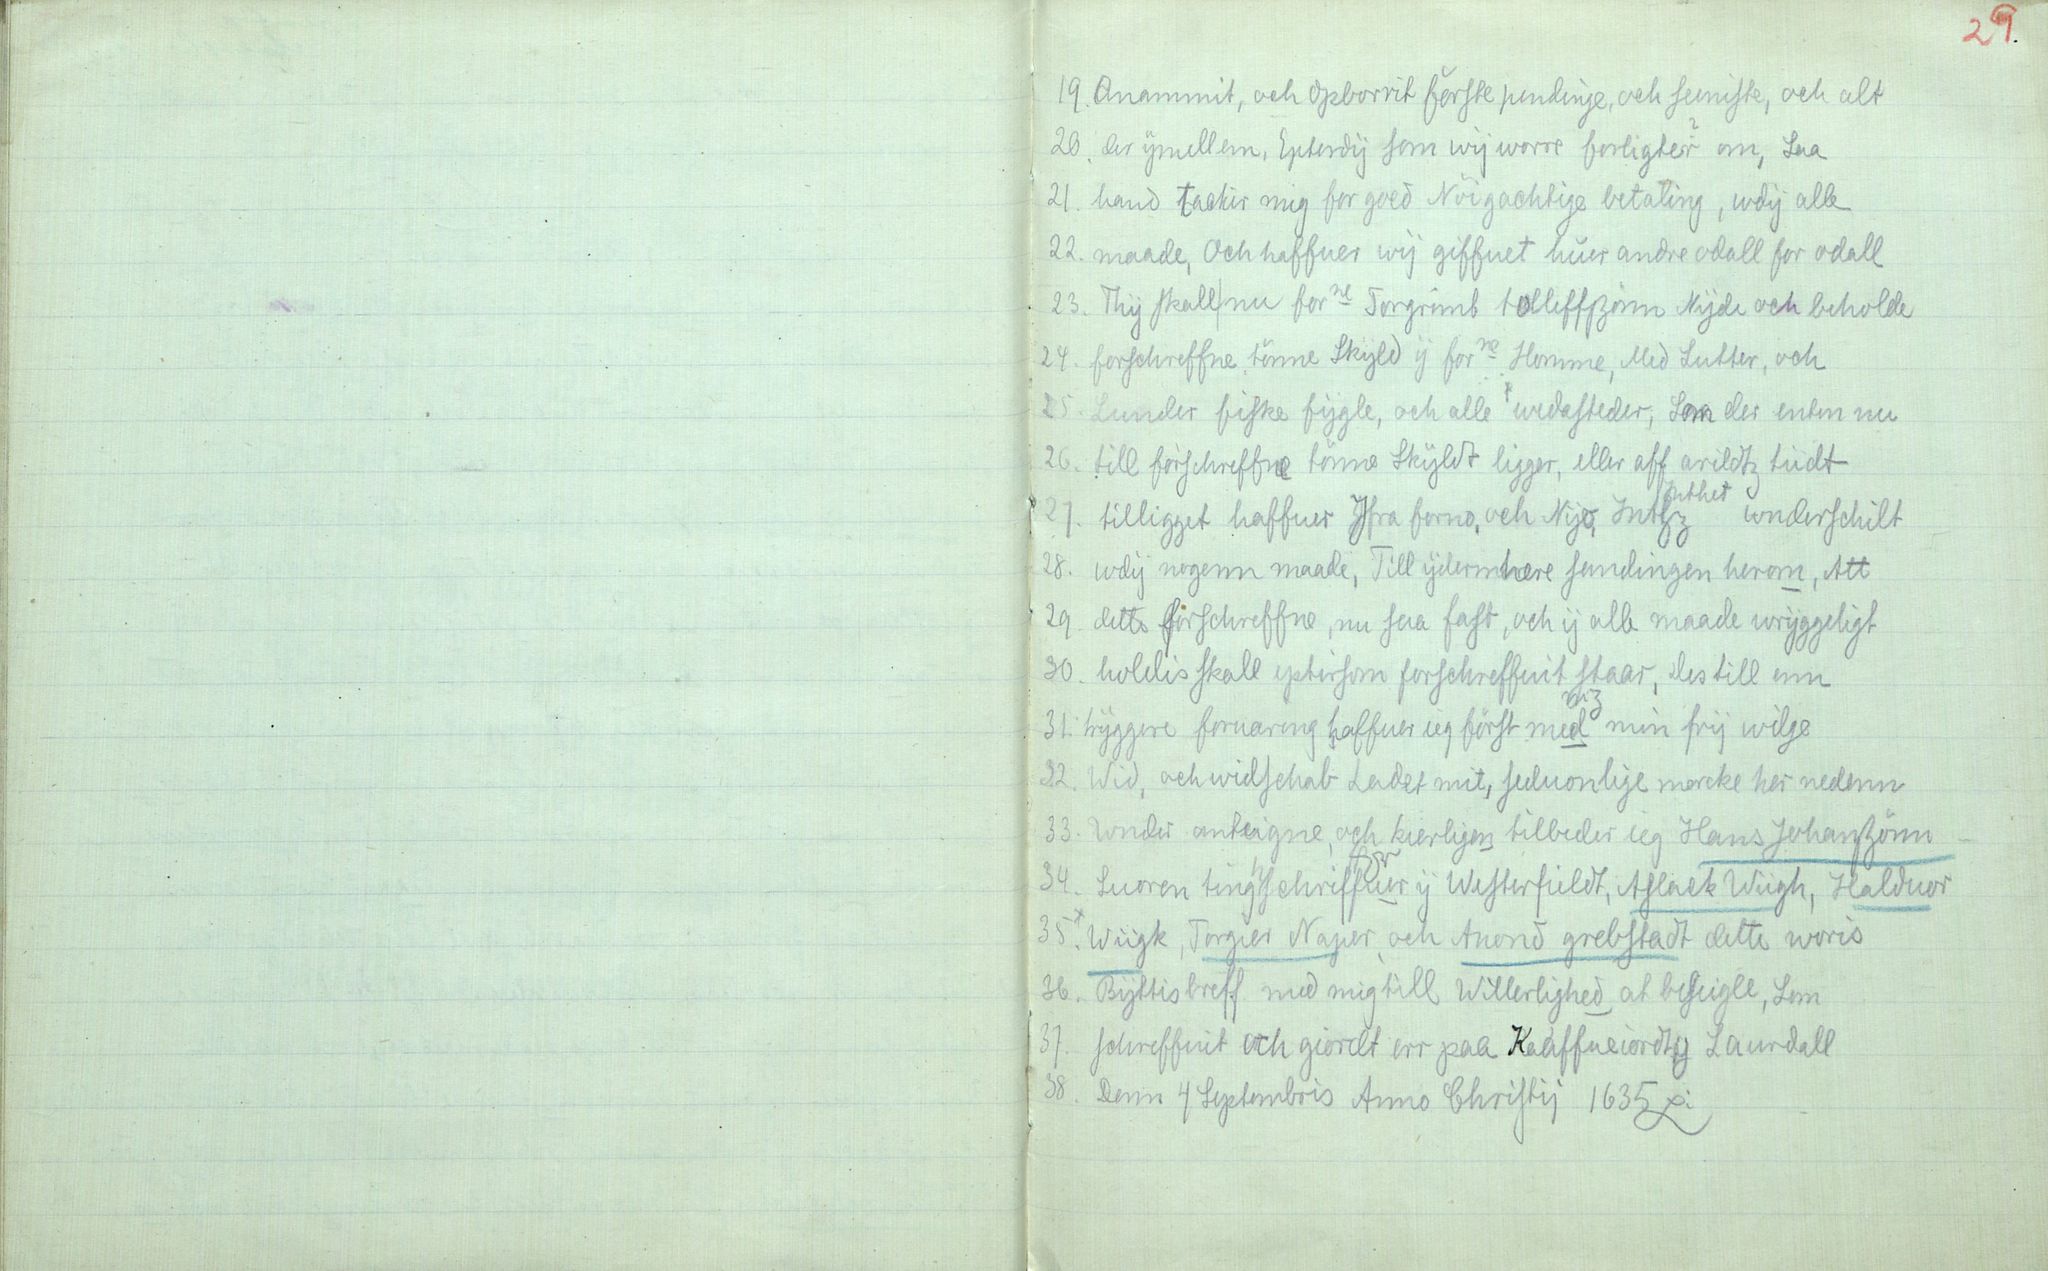 29.
19. Anammit, och Opborrit første pendinge, och seeniste, och alt
20. der ÿmellem, Epterdij som wij worre forligter? om, Saa
21. hand tackir mig for goed Nöigachtige betaling, wdij alle
22. maade, Och haffuer wij giffuet huer andre odall for odall
23. Thij skall nu for ne Torgrimb tolleffszönn Nÿde och beholde
24. forschreffne tönne Skÿld ÿ for ne Homme, Med Lutter, och
25. Lunder fiske fÿgle, och alle wedesteder, Som der enten nu
26. till forschreffne tönne Skÿldt ligger, eller aff arildtz tiidt
27. tilligget haffuer Ifra forno, och Nÿe, Inthz Inthet wnderschilt
28. wdij nogenn maade, Till ÿdermhere sandingen herom, Att
29. dette forschreffne, nu saa fast, och ij alle maade wrÿggeligt
30. holdis skall eptersom forschreffuit staar, des till enn
31. trÿggere foruaring haffuer ieg först med mz min frij wilge
32. Wid, och widschab Ladet mit, seduonlige mercke her nedenn
33. Wnder anteigne, och kierligen tilbeder ieg Hans Johanszönn
34. Suoren tingschriffuer for ij Westerfieldt, Aslack Wiigh, Halduor
35. Wiigk, Torgier Naper, och Anond grebstadt dette woris
36. Bÿttis breff med mig till Willerlighed at beseigle, Som
37. schreffuit och giordt err paa Kaaffneiordt ij Laurdall
38. Denn 4 Septembris Anno Christij 1635